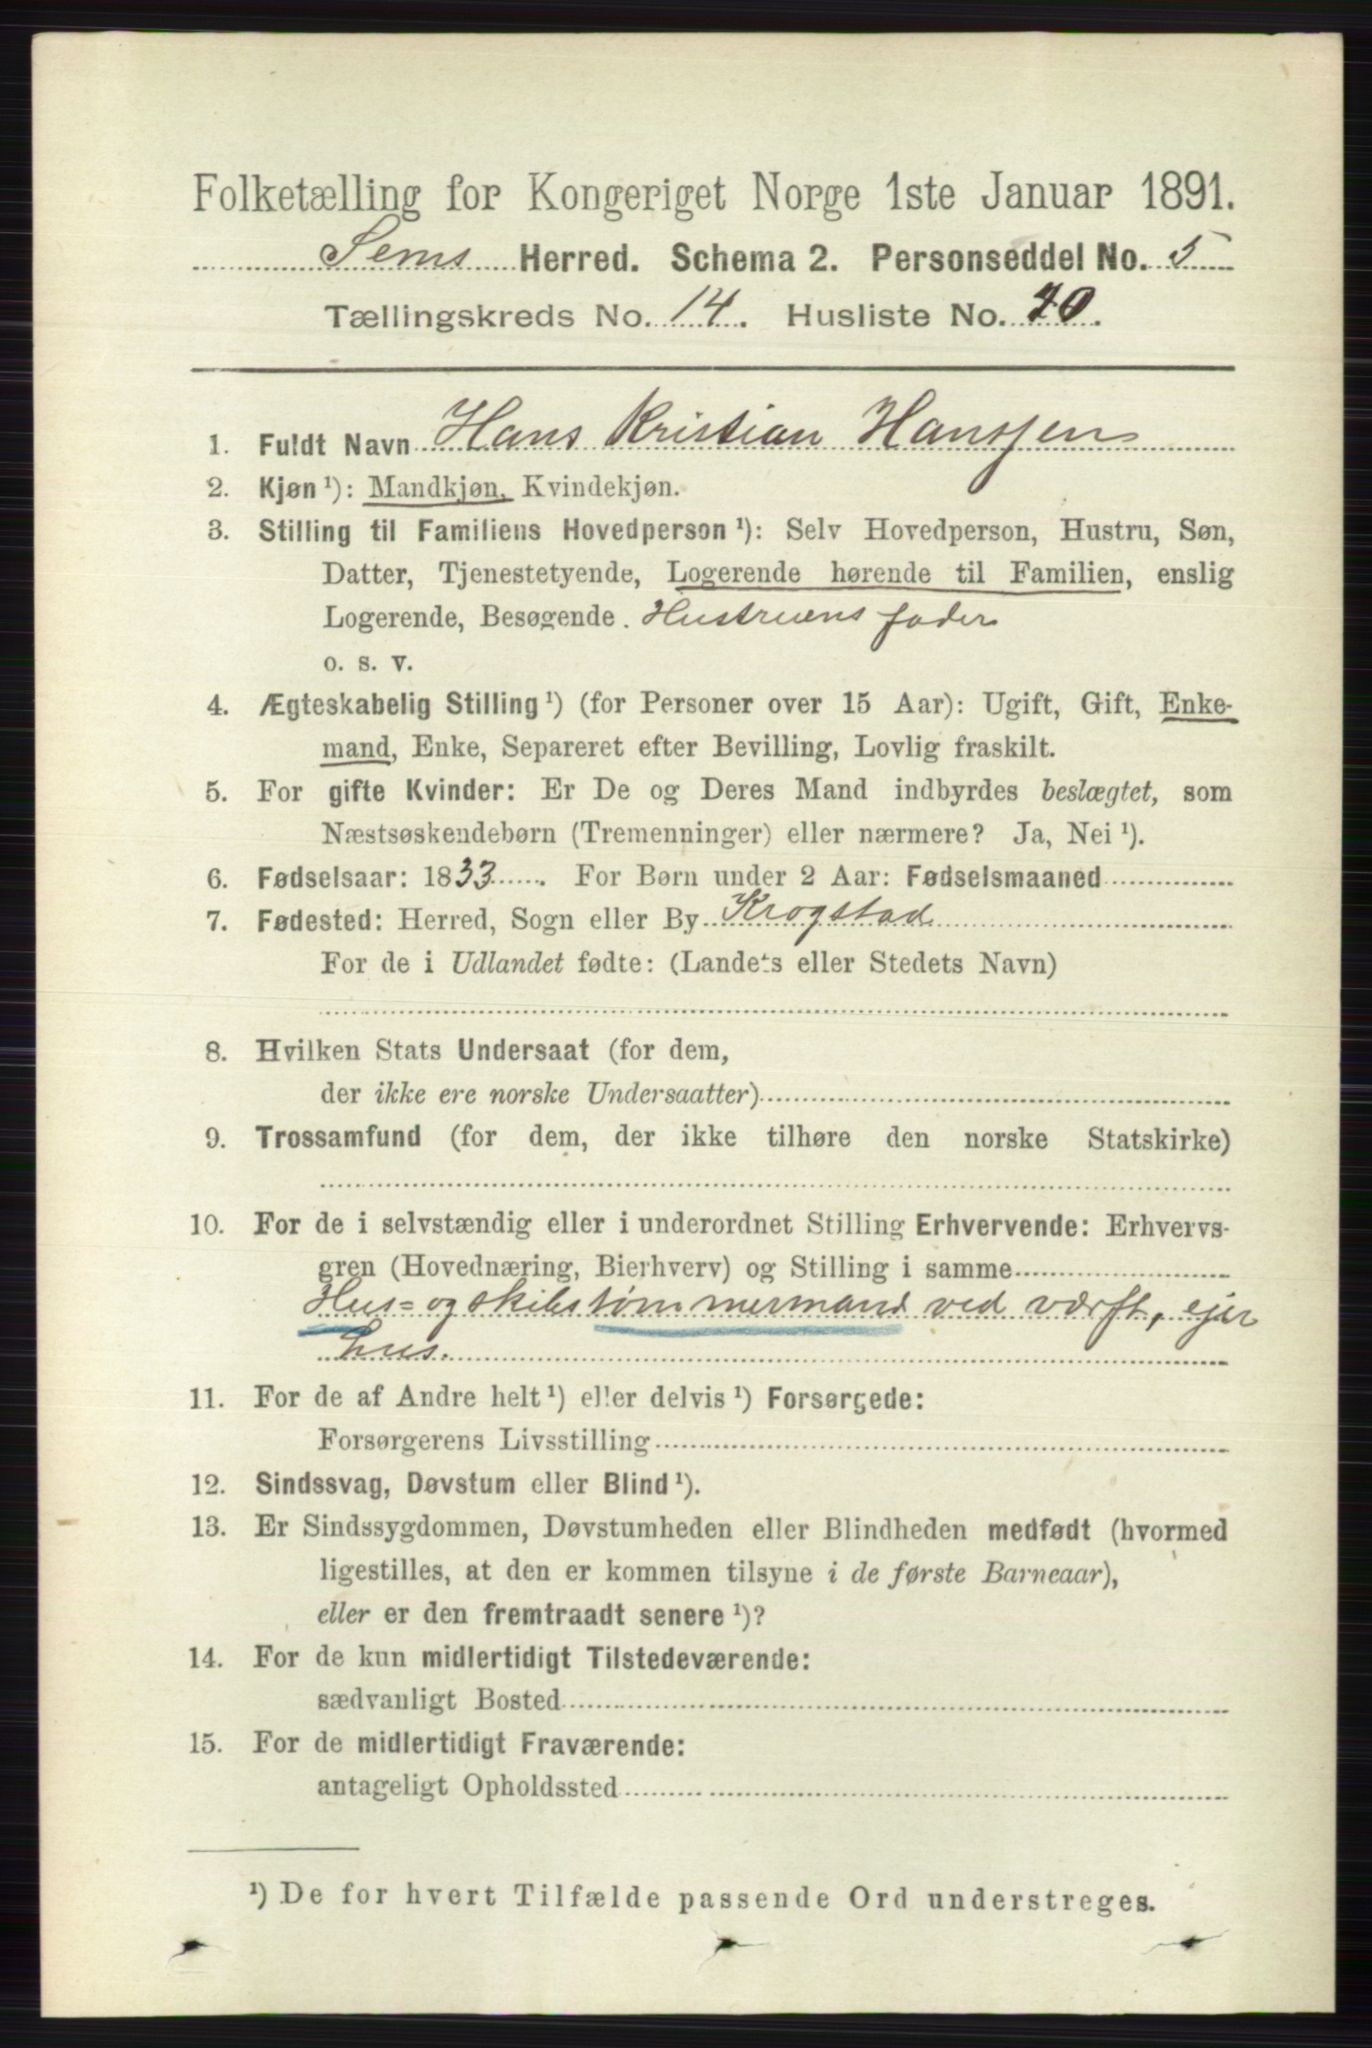 Folketælling for Kongeriget Norge 1ste Januar 1891.
Sems Herred. Schema 2. Personseddel No. 5
Tællingskreds No. 14. Husliste No. 70.
1. Fuldt Navn Hans Kristian Hanssen
2. Kjøn¹): Mandkjøn, Kvindekjøn.
3. Stilling til Familiens Hovedperson¹): Selv Hovedperson, Hustru, Søn,
Datter, Tjenestetyende, Logerende hørende til Familien, enslig
Logerende, Besøgende. Hustruens fader
o. s. v.
4. Ægteskabelig Stilling¹) (for Personer over 15 Aar): Ugift, Gift, Enke-
mand, Enke, Separeret efter Bevilling, Lovlig fraskilt.
5. For gifte Kvinder: Er De og Deres Mand indbyrdes beslægtet, som
Næstsøskendebørn (Tremenninger) eller nærmere? Ja, Nei¹).
6. Fødselsaar: 1833. For Børn under 2 Aar: Fødselsmaaned
7. Fødested: Herred, Sogn eller By Krogstad
For de i Udlandet fødte: (Landets eller Stedets Navn)
8. Hvilken Stats Undersaat (for dem,
der ikke ere norske Undersaatter)
9. Trossamfund (for dem, der ikke tilhøre den norske Statskirke)
10. For de i selvstændig eller i underordnet Stilling Erhvervende: Erhvervs-
gren (Hovednæring, Bierhverv) og Stilling i samme
Hus- og skibstømmermand ved værft, ejer
hus.
11. For de af Andre helt¹) eller delvis¹) Forsørgede:
Forsørgerens Livsstilling
12. Sindssvag, Døvstum eller Blind¹).
13. Er Sindssygdommen, Døvstumheden eller Blindheden medfødt (hvormed
ligestilles, at den er kommen tilsyne i de første Barneaar),
eller er den fremtraadt senere¹)?
14. For de kun midlertidigt Tilstedeværende:
sædvanligt Bosted
15. For de midlertidigt Fraværende:
antageligt Opholdssted
¹) De for hvert Tilfælde passende Ord understreges.